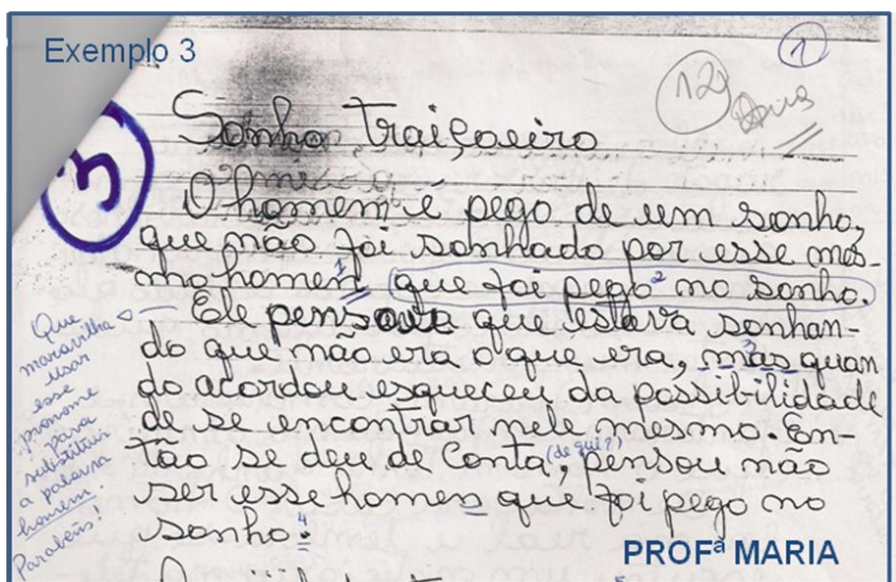 Exemplo 3
1
12)
3
Sonho traiçoeiro
O homem é pego de um sonho,
que não foi sonhado por esse mes-
mo homem 1 que foi pego 2 no sonho.
Ele pensou que estava sonhan-
do que não era o que era, 3 mas quan
do acordou esqueceu da possibilidade
de se encontrar nele mesmo. En-
tão se deu de conta (de quê?), pensou não
ser esse homem que foi pego no
sonho. 4
Que
maravilha
usar
esse
pronome
para
substituir
a palavra
homem
Parabéns!
PROFª MARIA